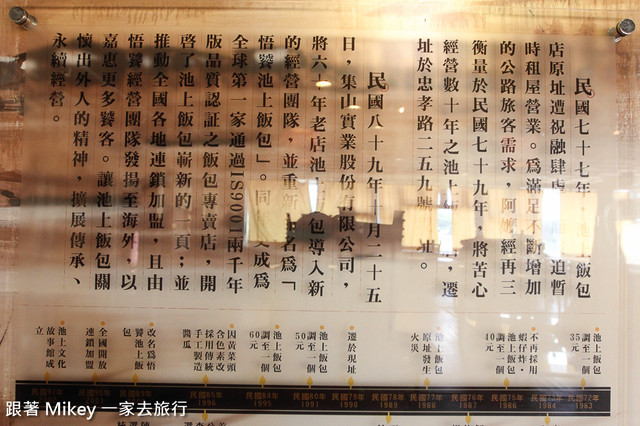 民國七十七年，池上飯包
店原址遭祝融肆虐，迫暫
時租屋營業。為滿足不斷增加
的公路旅客需求，阿嬤經再三
衡量於民國七十九年，將苦心
經營數十年之池上飯　，遷
址於忠孝路二五九號　址。
民國八十九年　月二十五
日，集山實業股份有限公司，
將六十年老店池上　包導入新
的經營團隊，並重新　名為「
悟饕池上飯包」。同　成為
全球第一家通過ISO9001兩千年
版品質認証之飯包專賣店，開
啓了池上飯包嶄新的一頁；並
推動全國各地連鎖加盟，且由
悟饕經營團隊發揚至海外，以
嘉惠更多饕客。讓池上飯包關
懷出外人的精神，擴展傳承、
永續經營。
池上飯包
調至一個
35元
不再採用
蝦仔炸，
池上飯包
調至一個
40元
池上飯包
原址發生
火災
遷於現址
池上飯包
調至一個
50元
池上飯包
調至一個
60元
因黃菜頭
含色素改
採用傳統
手工製造
醬瓜
改名為悟
饕池上飯
包
全國開放
連鎖加盟
池上文化
故事館成
立
民國72年
1983
民國73年
1984
民國75年
1986
民國76年
1987
民國77年
1988
民國78年
1989
民國79年
1990
民國80年
1991
民國84年
1995
跟著 Mikey 一家去旅行